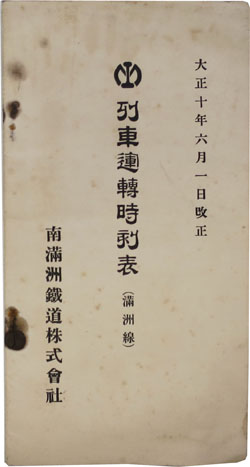 大正十年六月一日改正
列車運轉時刻表
（滿洲線）
南滿洲鐵道株式會社